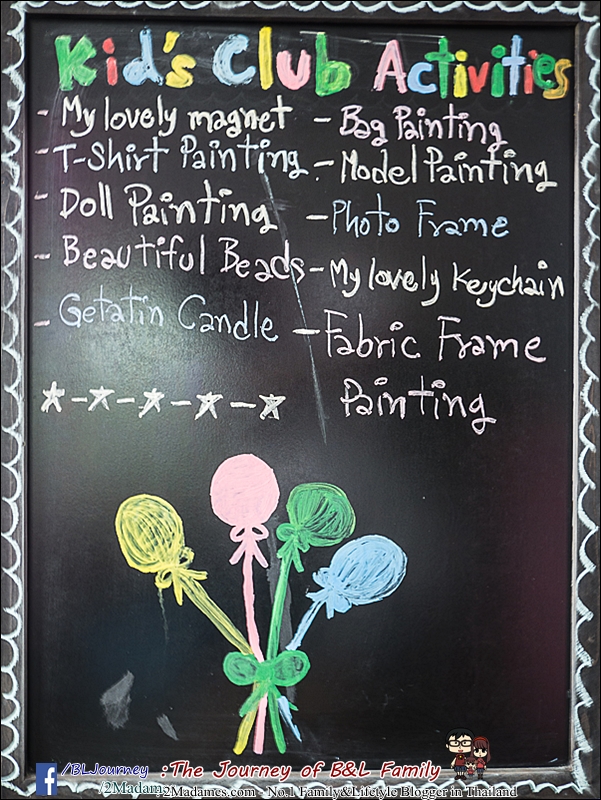 Kid's Club Activities
- My lovely magnet
- T-Shirt Painting
- Doll Painting
- Beautiful Beads
- Getatin Candle
- Bag Painting
- Model Painting
- Photo Frame
- My lovely Keychain
- Fabric Frame
Painting
/BLJourney :The Journey of B&L Family
2Madames.com - No.1 Family&Lifetyle Blogger in Thailand